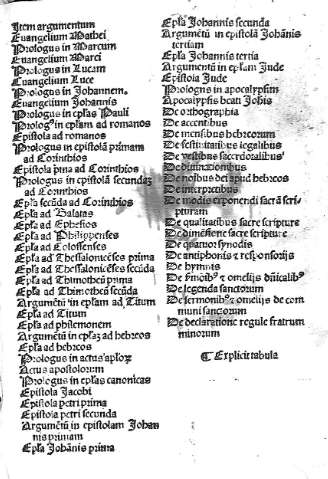 Item argumentum
Euangelium Mathei
Prologus in Marcum
Euangelium Marci
Prologus in Lucam
Euangelium Luce
Prologus in Johannem
Euangelium Johannis
Prologus in epłas Pauli
Prolog⁹ in epłam ad romanos
Epistola ad romanos
Prologus in epistolā primam
ad Corinthios
Epistola pͥma ad Corinthios
Prologus in epistolā secundaʒ
ad Corinthios
Epła secūda ad Corinthios
Epła ad Galatas
Epła ad Ephesios
Epła ad Philippenses
Epła ad Colossenses
Epła ad Thessalonicēses prima
Epła ad Thessalonicēses secūda
Epła ad Thimotheū prima
Epła ad Thimotheū secūda
Argumētū in epłam ad Titum
Epła ad Titum
Epła ad philemonem
Argumētū in epłaʒ ad hebreos
Epła ad hebreos
Prologus in actus apłoꝝ
Actus apostolorum
Prologus in epłas canonicas
Epistola Jacobi
Epistola petri prima
Epistola petri secunda
Argumētū in epistolam Johan
nis primam
Epła Johānis prima
Epła Johannis secunda
Argumētū in epistolā Johānis
tertiam
Epła Johannis tertia
Argumentū in epłam Jude
Epistola Jude
Prologus in apocalypsim
Apocalypsis beati Johis
De orthographia
De accentibus
De mensibus hebreorum
De festiuitatibus legalibus
De vestibus sacerdotalibus
De diuinationibus
De nosbus dei apud hebreos
De interpretibus
De modis exponendi sacrā scri
pturam
De qualitatibus sacre scripture
De dimēsione sacre scripture
De quatuor synodis
De antiphonis &amp; responsorijs
De hymnis
De sͬmoibꝰ &amp; omelijs dñicalibꝰ
De legenda sanctorum
De sermonibꝰ &amp; omelijs de com
muni sanctorum
De declaratione regule fratrum
minorum
¶ Explicit tabula